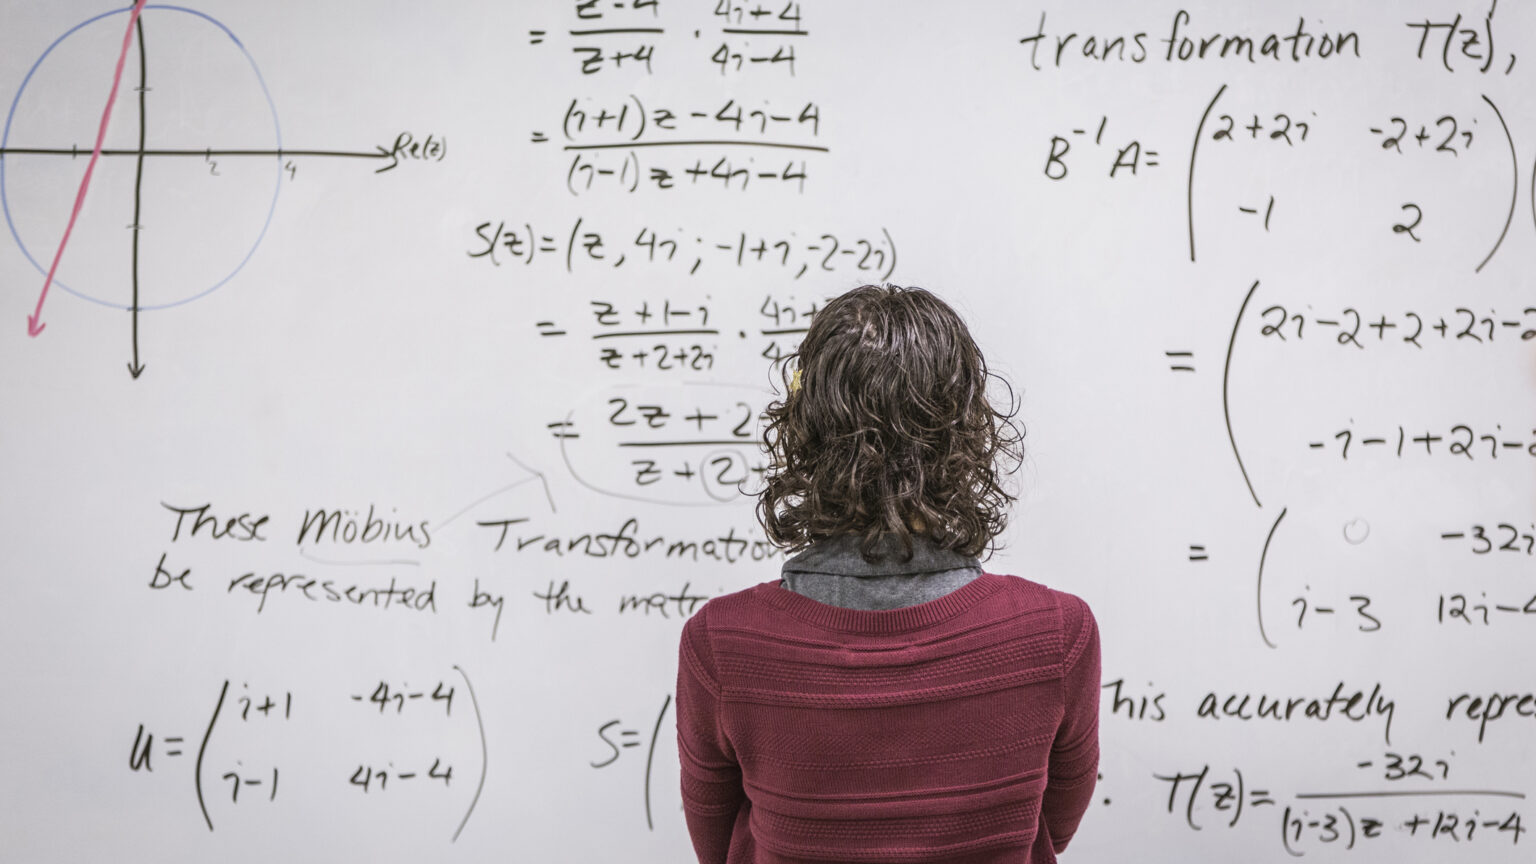 Re(z)
2
4
= z-4/z+4 · 4i+4/4i-4
= (i+1)z-4i-4/(i-1)z+4i-4
S(z)=(z,4i;-1+i,-2-2i)
= z+1-i/z+2+2i · 4i+/4
= 2z+2/z+2+
These Möbius Transformation
be represented by the matr
U=(i+1 -4i-4
i-1 4i-4)
S=(
transformation T(z),
B⁻¹A=(2+2i -2+2i
-1 2)(
=(2i-2+2+2i-2
-i-1+2i-2
=(0 -32i
i-3 12i-4
This accurately repre
. T(z)= -32i/(i-3)z+12i-4